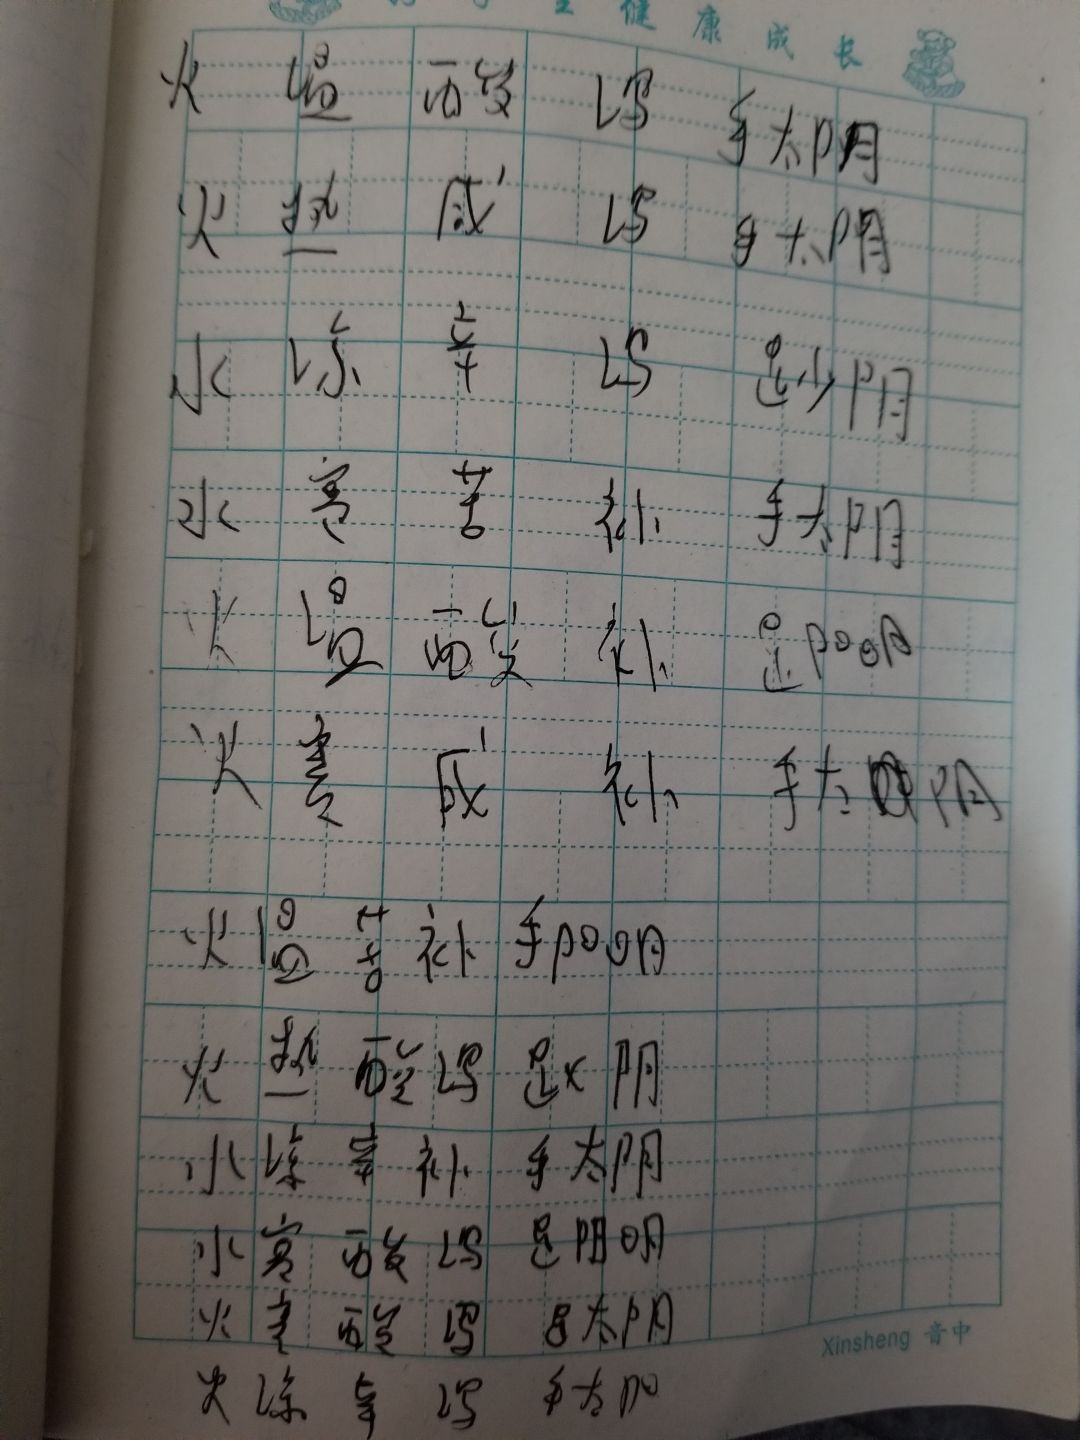 学生健康成长
火 温 酸 泻 手太阴
火 热 咸 泻 手太阴
水 凉 辛 泻 足少阴
水 寒 苦 补 手太阴
火 温 酸 补 足阳明
火 咸 补 手太阴
火 温 苦 补 手阳明
火 热 酸 泻 足 阴
水 凉 辛 补 手太阴
水 寒 酸 泻 足阳明
火 酸 泻 太阴
火 凉 辛 泻 手太阳
Xinsheng 音中